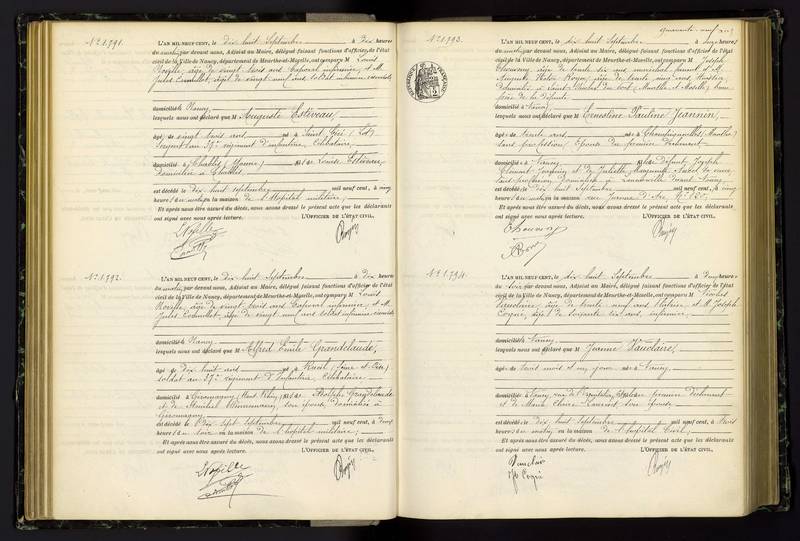 N° 1791.
L'AN MIL NEUF CENT, le dix huit Septembre à dix heures
du matin par devant nous, Adjoint au Maire, délégué faisant fonctions d'officier de l'état
civil de la Ville de Nancy, département de Meurthe-et-Moselle, ont comparu M Louis
âgé de vingt trois ans Caporal infirmier et M.
Jules âgé de vingt neuf ans soldat infirmier
domicilié à Nancy
lesquels nous ont déclaré que M Auguste Estiveau,
âgé de vingt trois ans né à Saint (Lot)
Sergent au 37e régiment d'infanterie, célibataire,
domicilié à Chablis (Yonne) fils de Louis Estiveau,
domicilié à Chablis,
est décédé le dix huit septembre mil neuf cent, à cinq
heures du matin en la maison de l'hôpital militaire,
Et après nous être assuré du décès, nous avons dressé le présent acte que les déclarants
ont signé avec nous après lecture. L'OFFICIER DE L'ÉTAT CIVIL,
N° 1792.
L'AN MIL NEUF CENT, le dix huit Septembre à dix heures
du matin, par devant nous, Adjoint au Maire, délégué faisant fonctions d'officier de l'état
civil de la Ville de Nancy, département de Meurthe-et-Moselle, ont comparu M Louis
âgé de vingt trois ans Caporal infirmier, et M.
Jules âgé de vingt neuf ans soldat infirmier
domicilié à Nancy
lesquels nous ont déclaré que M Alfred Emile Grandclaude,
âgé de dix huit ans né à Rueil (Seine et Oise)
soldat au 37e régiment d'Infanterie, célibataire
domicilié à Giromagny (Haut Rhin) fils de Adolphe Grandclaude
et de son épouse, domiciliés à
Giromagny
est décédé le dix sept septembre mil neuf cent, à deux
heures du soir en la maison de l'hôpital militaire,
Et après nous être assuré du décès, nous avons dressé le présent acte que les déclarants
ont signé avec nous après lecture. L'OFFICIER DE L'ÉTAT CIVIL,
N° 1793.
L'AN MIL NEUF CENT, le dix huit Septembre à onze heures
du matin, par devant nous, Adjoint au Maire, délégué faisant fonctions d'officier de l'état
civil de la Ville de Nancy, département de Meurthe-et-Moselle, ont comparu M Joseph
âgé de trente six ans et M.
Auguste Victor âgé de trente cinq ans
domicilié à Saint Nicolas du Port (Meurthe et Moselle)
de la défunte
domicilié à Nancy
lesquels nous ont déclaré que M Ernestine Pauline Jeannin,
âgée de trente ans née à Champigneulles (Meurthe)
sans profession, épouse du premier déclarant
domiciliée à Nancy fille de défunt Joseph
et de Juliette Marguerite
sans profession domiciliée à
est décédée le dix huit septembre mil neuf cent, à cinq
heures du matin en la maison rue Jeanne d'Arc, N° 125,
Et après nous être assuré du décès, nous avons dressé le présent acte que les déclarants
ont signé avec nous après lecture. L'OFFICIER DE L'ÉTAT CIVIL,
N° 1794.
L'AN MIL NEUF CENT, le dix huit Septembre à deux heures
du soir par devant nous, Adjoint au Maire, délégué faisant fonctions d'officier de l'état
civil de la Ville de Nancy, département de Meurthe-et-Moselle, ont comparu M Nicolas
Vauclaire, âgé de trente neuf ans et M. Joseph
âgé de soixante six ans, infirmier,
domicilié à Nancy
lesquels nous ont déclaré que M Jeanne Vauclaire,
âgée de trois mois et un jour née à Nancy,
domiciliée à Nancy, fille du premier déclarant
et de Marie son épouse
est décédée le dix huit septembre mil neuf cent, à trois
heures du matin, en la maison de l'hôpital Civil,
Et après nous être assuré du décès, nous avons dressé le présent acte que les déclarants
ont signé avec nous après lecture. L'OFFICIER DE L'ÉTAT CIVIL,